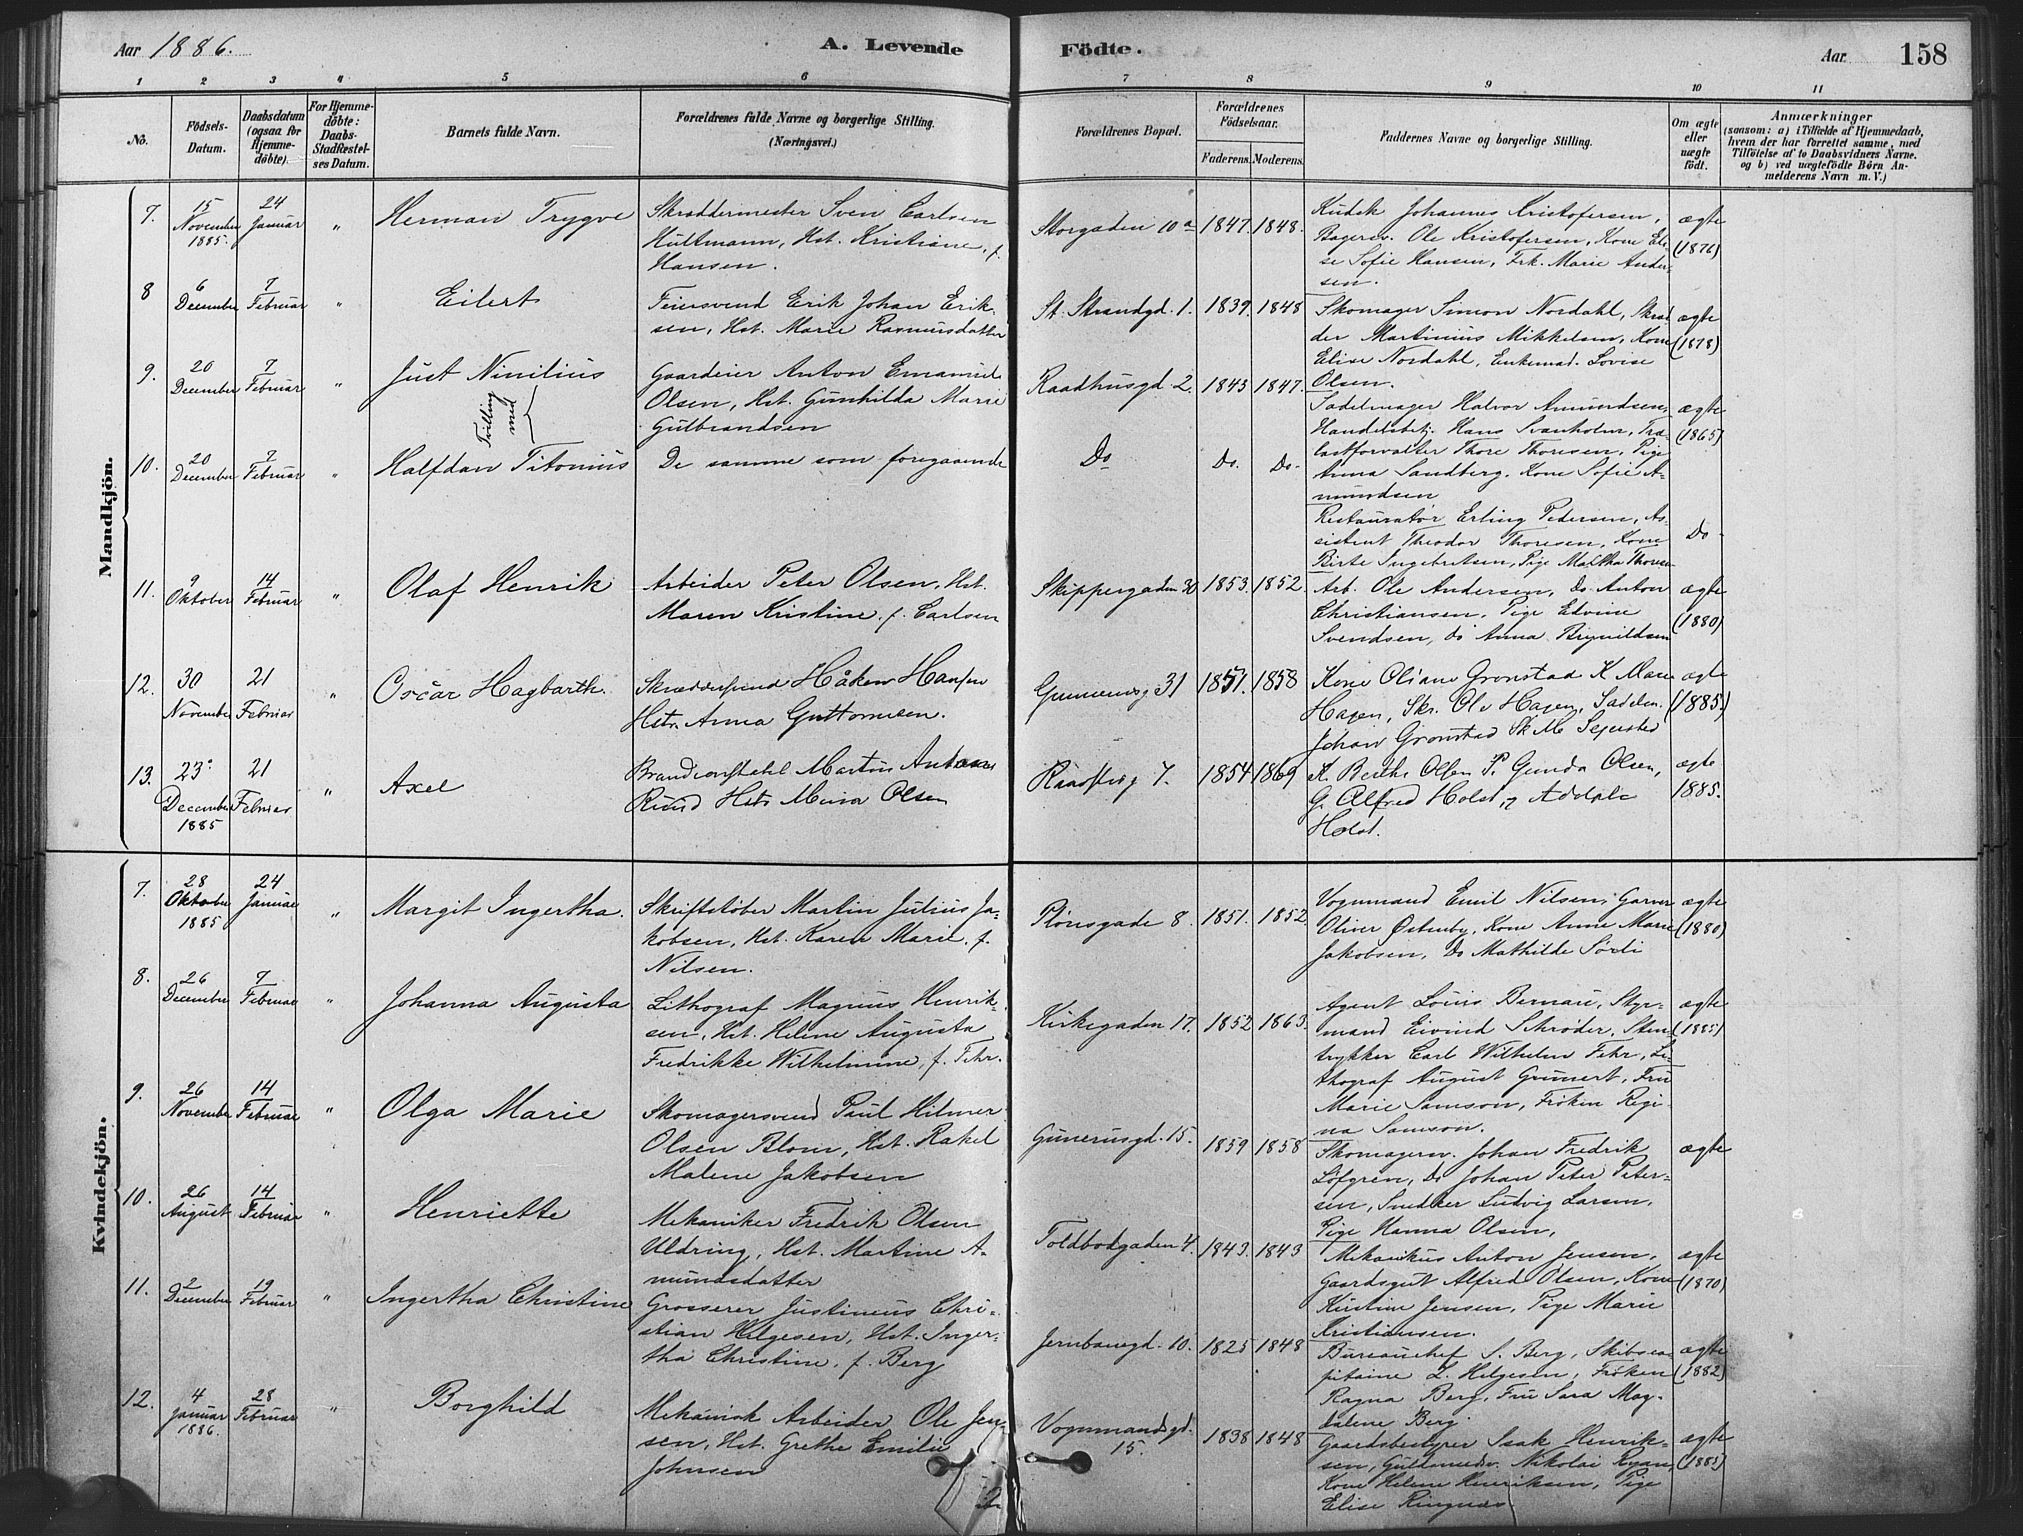 Aar 1886.
A. Levende Födte.
Aar 158
1 2 3 4 5 6 7 8 9 10 11
No.
Födsels-Datum.
Daabsdatum (ogsaa for Hjemmedöbte).
For Hjemmedöbte: Daabs-Stadfæstelses Datum.
Barnets fulde Navn.
Forældrenes fulde Navne og borgerlige Stilling.
(Næringsvei.)
Forældrenes Bopæl.
Forældrenes Födselsaar.
Faderens. Moderens.
Faddernes Navne og borgerlige Stilling.
Om ægte eller uægte födt.
Anmærkninger
(saasom: a) i Tilfælde af Hjemmedaab,
hvem der har forrettet samme, med
Tilföielse af to Daabsvidners Navne.
og b) ved uægtefödte Börn Anmelderens Navn m. V.)
Mandkjön.
7. 15 November 1885. 24 Januar " Herman Trygve
Skræddermester Sven Carlsen
Hultmann, Hst. Kristiane, f.
Hansen.
Storgaden 10a 1847. 1848.
Johannes Kristofersen,
Bagersv. Ole Kristofersen, Kone Eli-
se Sofie Hansen, Frk. Marie Ander-
sen.
ægte (1876)
8 6 December 7 Februar " Eilert
Feiersvend Erik Johan Erik-
sen, Hst. Marie Rasmusdatter
St. Strandgd. 1. 1839. 1848
Skomager Simon Nordahl, Skræd
der Martinius Mikkelsen, Kone
Elise Nordahl, Enkemad. Lovise
Olsen.
ægte (1878)
9. 20 December 7 Februar " Just Ninilius
Tvilling med
Gaardeier Anton Emanuel
Olsen, Hst. Gunhilda Marie
Gulbrandsen
Raadhusgd. 2. 1843 1847.
Sadelmager Halvor Amundsen,
Handelsbetj. Hans Svanholm, Træ-
lastforvalter Thore Thoresen, Pige
Anna Sandberg, Kone Sofie A-
mundsen
ægte (1865)
10. 20 December 7 Februar " Halfdan Titonius
De samme som foregaaende
Do Do. Do.
Restauratør Erling Pedersen, As-
sistent Theodor Thoresen, Kone
Birte Ingebretsen, Pige Martha Thorese
Do
11. 9 Oktober 14 Februar " Olaf Henrik
Arbeider Peter Olsen, Hst.
Maren Kristine, f. Carlsen
Skippergaden 30 1853. 1852.
Arb. Ole Andersen, Do Anton
Christiansen, Pige Edvine
Svendsen, do Anna Brynildsen
ægte (1880)
12. 30 November 21 Februar " Oscar Hagbarth.
Skræddersvend Håken Hansen
Hstr. Anna Guttormsen.
31 1857. 1858
Kone Oliane Grønstad K Maren
Hagen, Skr. Ole Hagen, Sadelm.
Johan Grønstad
ægte (1885.)
13. 23 December 1885 21 Februar " Axel
Brandconstabel Martin Anton
Hstr Mina Olsen
7. 1854 1869
K. Berthe Olsen P. Gunda Olsen,
G. Alfred Holst, Adolph
Holst.
ægte 1885.
Kvindekjön.
7. 28 Oktober 1885 24 Januar " Margit Ingertha.
Skriftstøber Martin Julius Ja-
kobsen, Hst. Karen Marie, f.
Nilsen.
Plønsgade 8. 1851. 1852.
Vognmand Emil Nilsen, Garver
Oliver Østenby, Kone Anne Marie
Jakobsen, Do Mathilde Sørli
ægte (1880)
8. 26 December 7 Februar " Johanna Augusta
Lithograf Magnus Henrik-
sen, Hst. Helene Augusta
Fredrikke Wilhelmine, f. Fehr.
Kirkegaden 17. 1852 1863.
Agent Louis Bernau, Styr-
mand Eivind Schrøder, Sten
trykker Carl Wilhelm Fehr, Li-
thograf August Grunert, Fru
Marie Samson, Frøken Regi-
na Samson.
ægte (1885)
9. 26 November 14 Februar " Olga Marie
Skomagersvend Paul Hilmer
Olsen Blom, Hst. Rakel
Malene Jakobsen
Gunerusgd. 15. 1859 1858
Skomagersv. Johan Fredrik
Løfgren, Do Johan Peter Peter-
sen, Snedker Ludvig Larsen,
Pige Hanna Olsen,
ægte
10. 26 August 14 Februar " Henriette
Mekaniker Fredrik Olsen
Uldring, Hst. Martine A-
mundsdatter
Toldbodgaden 4. 1843. 1843
Mekanikus Anton Jensen,
Gaardsgut Alfred Olsen, Kone
Kirstine Jensen, Pige Marie
Kristiansen.
ægte (1870)
11. 2 December 19 Februar " Ingertha Christine
Grosserer Justineus Chri-
stian Helgesen, Hst. Inger-
tha Christine, f. Berg
Jernbanegd. 10. 1825 1848
Bureauchef S. Berg, Skibsca-
pitaine L. Helgesen, Frøken
Ragna Berg, Fru Sara Mag-
dalene Berg.
ægte (1882)
12. 4 Januar 1886. 28 Februar " Borghild
Mekanisk Arbeider Ole Jen-
sen, Hst. Grethe Emilie
Johnsen
Vognmandsgd. 15. 1838 1848
Gaardsbestyrer Isak Henrik-
sen, Nikolai Ryan,
Kone Helene Henriksen, Pige
Elise Ringnæs
ægte